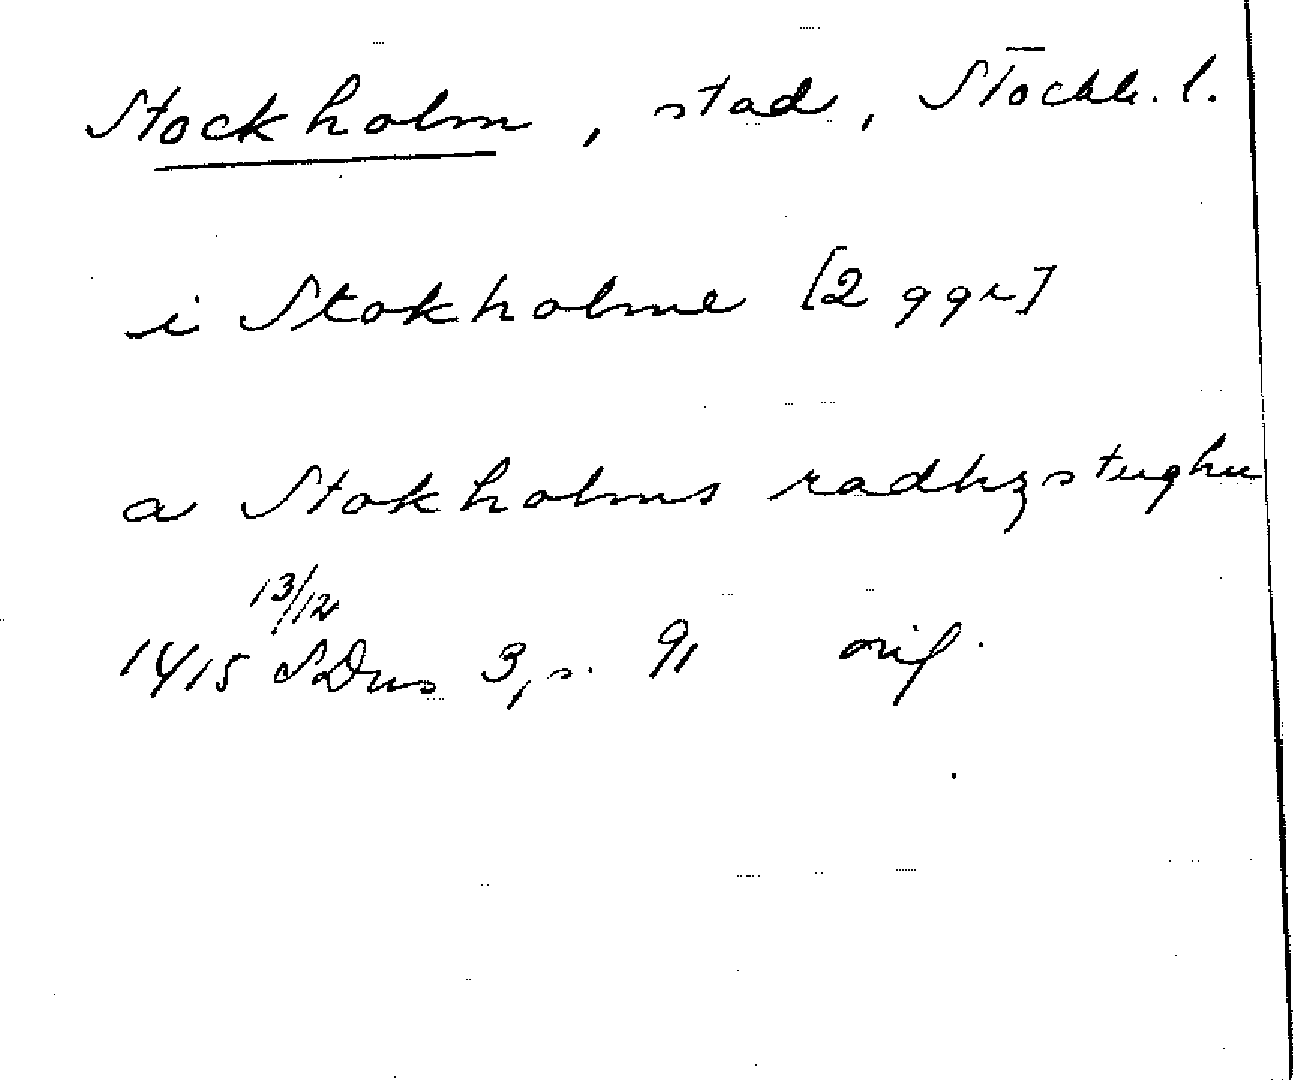 Stockholm, stad, Stockh. l.
i Stokholme [2 ggr]
a Stokholms radhzstughu
13/12
1415 SDns 3, s. 91 orig.